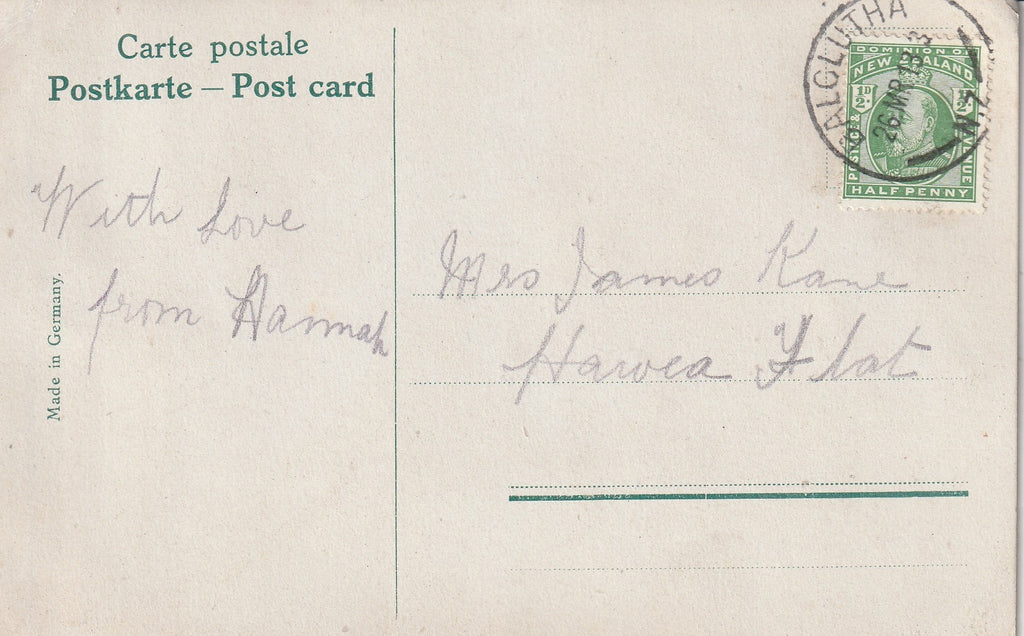 Carte postale
Postkarte – Post card
BALCLUTHA
26 MR 13
N.Z
DOMINION OF
NEW ZEALAND
½D ½D
POSTAGE & REVENUE
HALF PENNY
With love
from Hannah
Made in Germany.
Mrs James Kane
Hawea Flat